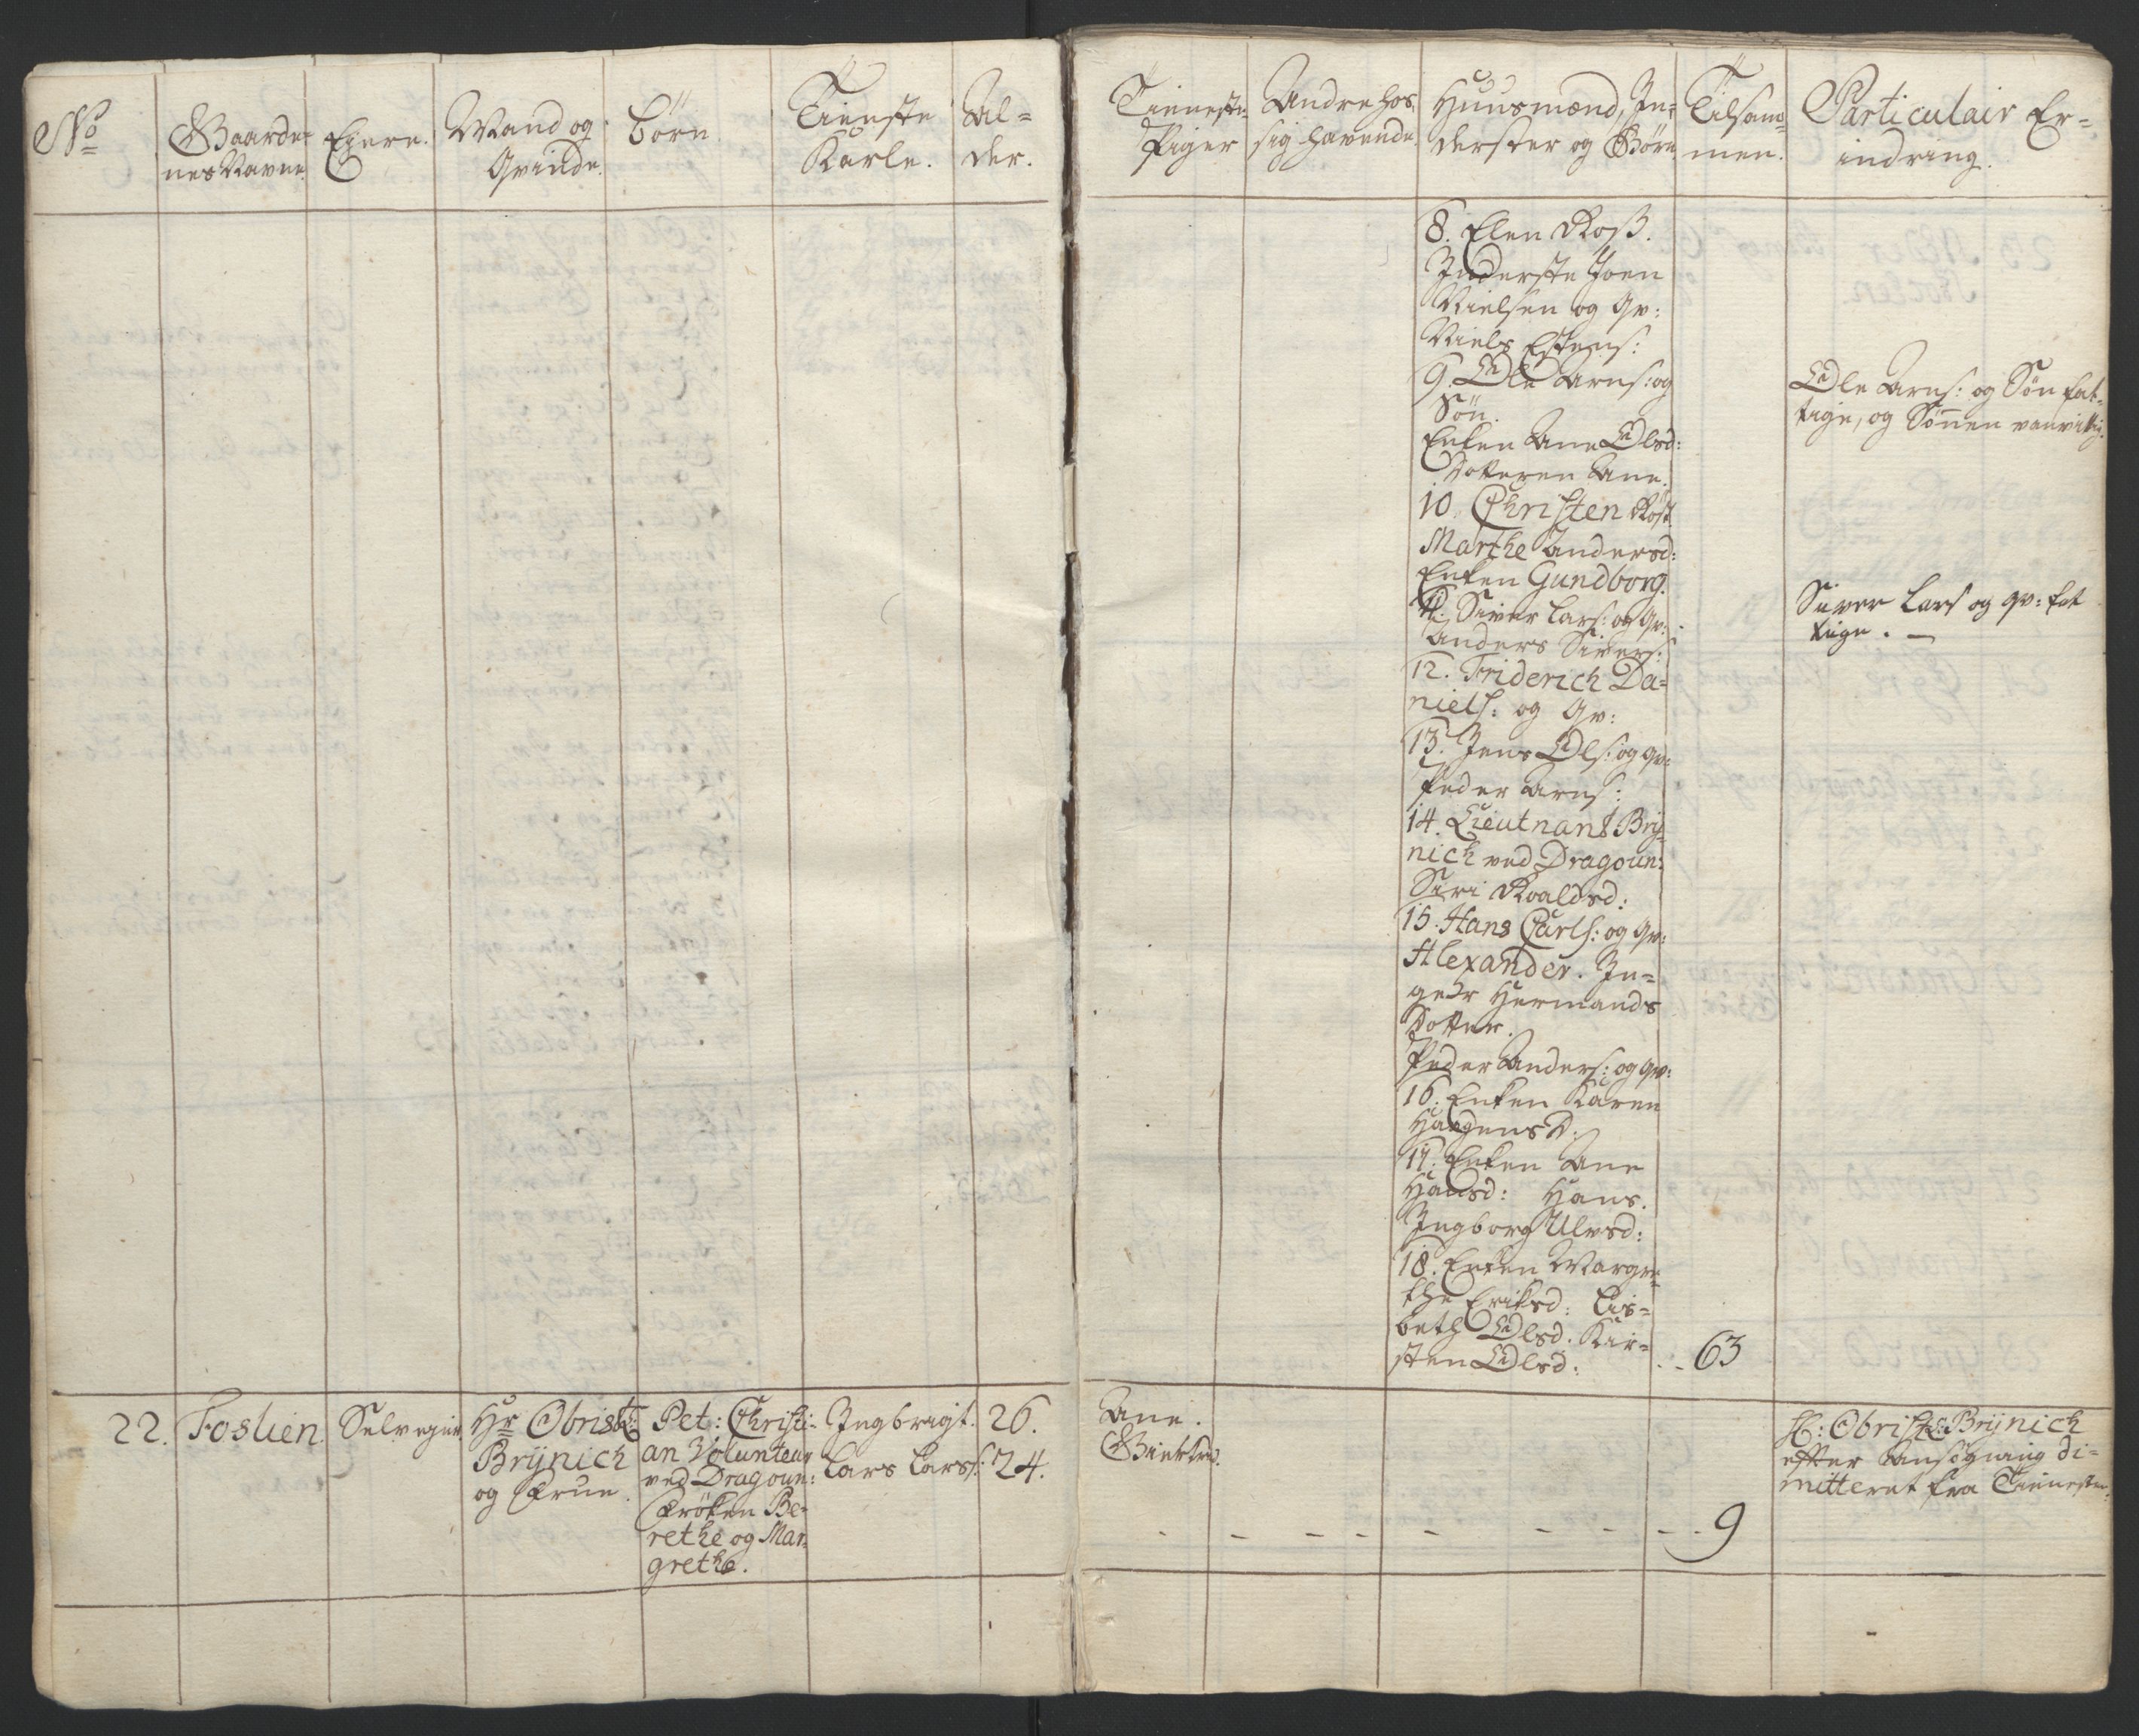 No
Gaarde=
nes Navne.
Eiere.
Mand og
Qvinde.
Börn
Tieneste
Karle.
Al=
der.
Tieneste
Piger
Andre hos
sig havende.
Huusmænd, In=
derster og Börn
Tilsam=
men.
Particulair Er=
indring.
8. Elen Roß.
Inderste Joen
Nielsen og Qv:
Niels Estens:
9. Ole Arns: og
Sön.
Enken Ane Olsd:
Dotteren Ane.
10. Christen Röst
Marthe Andersd:
Enken Gundborg.
11. Siver Lars: og Qv:
Anders Sivers:
12. Friderich Da=
niels: og Qv:
13. Jens Ols: og qv:
Peder Arns:
14. Lieutnant Brÿ=
nich ved Dragoun:
Siri Roaldsd:
15. Hans Carls: og Qv:
Alexander. In=
gebr Hermands
Dotter.
Peder Anders: og qv:
16. Enken Karen
Haagensd:
17. Enken Ane
Hansd: Hans.
Ingborg Ulvsd:
18. Enken Margre=
the Eriksd: Lis=
beth Olsd. Kir=
sten Olsd:
63
Ole Arns: og Sön fat=
tige, og Sönnen vanvittig.
Siver Lars og qv: fat
tige. —
22.
Foslien
Selveyer
Hr Obristl:
Brÿnich
og Frue.
Pet: Christi=
an Volunteur
ved Dragoun:
Fröken Be=
rethe og Mar=
grethe.
Ingbrigt.
Lars Larss:
26.
24.
Ane.
Giertrud.
9
H: Obristl: Brÿnich
efter Ansögning di=
mitteret fra Tienesten.